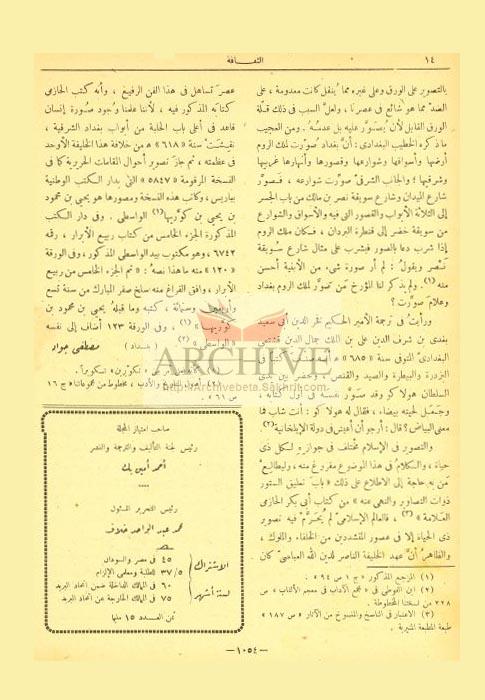 ١٤
الثقافة
بالتصوير على الورق وعلى غيره مما يُنقل كانت معدومة ، على
الضد مما هو شائع في عصرنا ، ولعل السبب في ذلك قلة
الورق القابل لأن يصور عليه بل عدمه . ومن العجيب
ما ذكره الخطيب البغدادي : أن بغداد صورت لملك الروم
أرضها وأسواقها وشوارعها وقصورها وأنهارها غربيها
وشرقيها ؛ والجانب الشرقي صورت شوارعه ، فصور
شارع الميدان وشارع سويقة نصر بن مالك من باب الجسر
إلى الثلاثة الأبواب والقصور التي فيه والأسواق والشوارع
من سويقة خضير إلى قنطرة البردان ، فكان ملك الروم
إذا شرب دعا بالصور فيشرب على مثال شارع سويقة
نصر ويقول : لم أر صورة شيء من الأبنية أحسن
منه (١) . ولم يذكر لنا المؤرخ من صور لملك الروم بغداد
وعلام صورت ؟
ورأيت في ترجمة الأمير الحكيم فخر الدين أبي سعيد
بغدي بن شرف الدين علي بن الملك جمال الدين قشتمر
البغدادي المتوفى سنة « ٦٨٥ » أنه صنف كتابا في
البزدرة والبيطرة والصيد والقنص ، وحضر بين يدي
السلطان هولاكو وقد صور نفسه في أول كتابه ،
وجعل لحيته بيضاء ، فقال له هولاكو : أنت شاب فما
معنى البياض ؟ قال : أرجو أن أعيش في دولة الإيلخانية (٢)
والتصوير في الإسلام مختلف في جوازه لكل ذي
حياة ، والكلام في هذا الموضوع مفروغ منه ، وليطالع
من به حاجة إلى الاطلاع على ذلك « باب تعليق الستور
ذوات التصاوير والنهي عنه » من كتاب أبي بكر الحازمي
العلامة » (٣) ، فالعالم الإسلامي لم يحرم فيه تصوير
ذي الحياة إلا في عصور المتشددين من الخلفاء والملوك ،
والظاهر أن عهد الخليفة الناصر لدين الله العباسي كان
(١) المرجع المذكور « ج ١ ص ٩٤ » .
(٢) ابن الفوطي في « مجمع الآداب في معجم الألقاب » ص
٢٢٨ من نسختنا المخطوطة .
(٣) الاعتبار في الناسخ والمنسوخ من الآثار « ص ١٨٧ »
طبعة المطبعة المنيرية .
عصر تساهل في هذا الفن الرفيع ، وأنه كتب الحازمي
كتابه المذكور فيه ، لأننا علمنا وجود صورة إنسان
قاعد في أعلى باب الحلبة من أبواب بغداد الشرقية ،
نقشت سنة « ٦١٨ » من خلافة هذا الخليفة الأوحد
في عظمته ، ثم جاز تصوير أحوال المقامات الحريرية كما في
النسخة المرقومة « ٥٨٤٧ » التي بدار الكتب الوطنية
بباريس ، وكاتب هذه النسخة ومصورها هو يحيى بن محمود
بن يحيى بن كوريها (١) الواسطي . وفي دار الكتب
المذكورة الجزء الخامس من كتاب ربيع الأبرار ، رقمه
٦٧٤٢ ، وهو مكتوب بيد الواسطي المذكور ، وفي الورقة
« ١٢٠ » منه ما هذا نصه : « تم الجزء الخامس من ربيع
الأبرار ، وافق الفراغ منه سلخ صفر المبارك من سنة تسع
وأربعين وستمائة ، كتبه وما قبله يحيى بن محمود بن
كوريها » (١) ، وفي الورقة ١٢٣ أضاف إلى نفسه
« الواسطي » (٢)
( بغداد ) مصطفى جواد
والأدب ، مخطوط من مجموعاتنا « ج ١٦
ص ٦١ » .
ARCHIVE
http://Archivebeta.Sakhrit.com
صاحب امتياز المجلة
رئيس لجنة التأليف والترجمة والنشر
أحمد أمين بك
رئيس التحرير المسئول
محمد عبد الواحد خلاف
الاشتراك
لسنة أشهر
٤٥ في مصر والسودان
٣٧/٥ للطلبة ومعلمي الإلزام
٦٠ في الممالك الداخلة ضمن اتحاد البريد
٧٥ في الممالك الخارجة عن اتحاد البريد
ثمن العدد ١٥ مليما
— ١٠٥٤ —